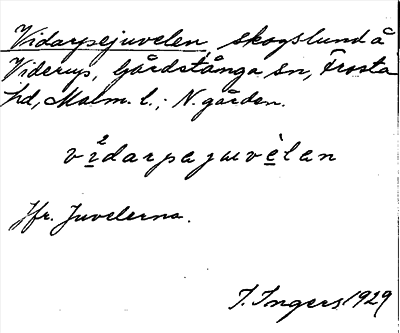 Vidarpejuvelen, skogslund å
Viderup, Gårdstånga sn, Frosta
hd, Malm. l.; N. gården.
vi²darpajuvèlan
Jfr. Juvelerna.
I. Ingers 1929